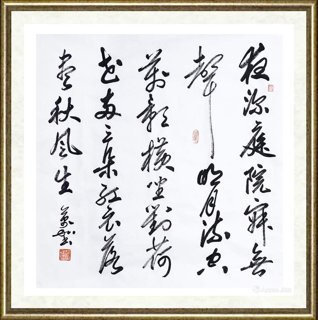 夜深庭院寂無
聲明月流空
萬影橫坐對荷
花兩三朵紅衣落
盡秋風生